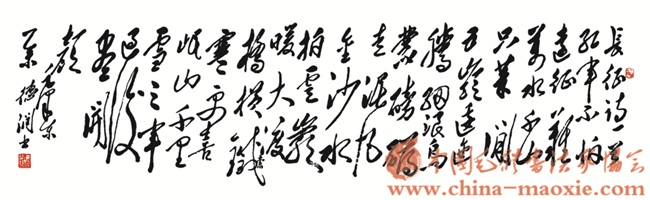 长征诗一首
红军不怕
远征难
万水千山
只等闲
五岭逶迤
腾细浪乌
蒙磅礴
走泥丸
金沙水
拍云崖
暖大渡
桥横铁
寒更喜
岷山千里
雪三军
过后
尽开
颜
毛泽东
德润书
中国毛体书法家协会
www.china-maoxie.com